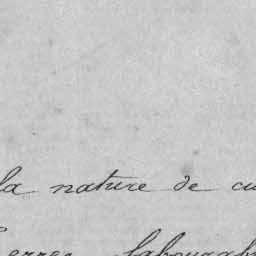 la nature de cu
erres labourab